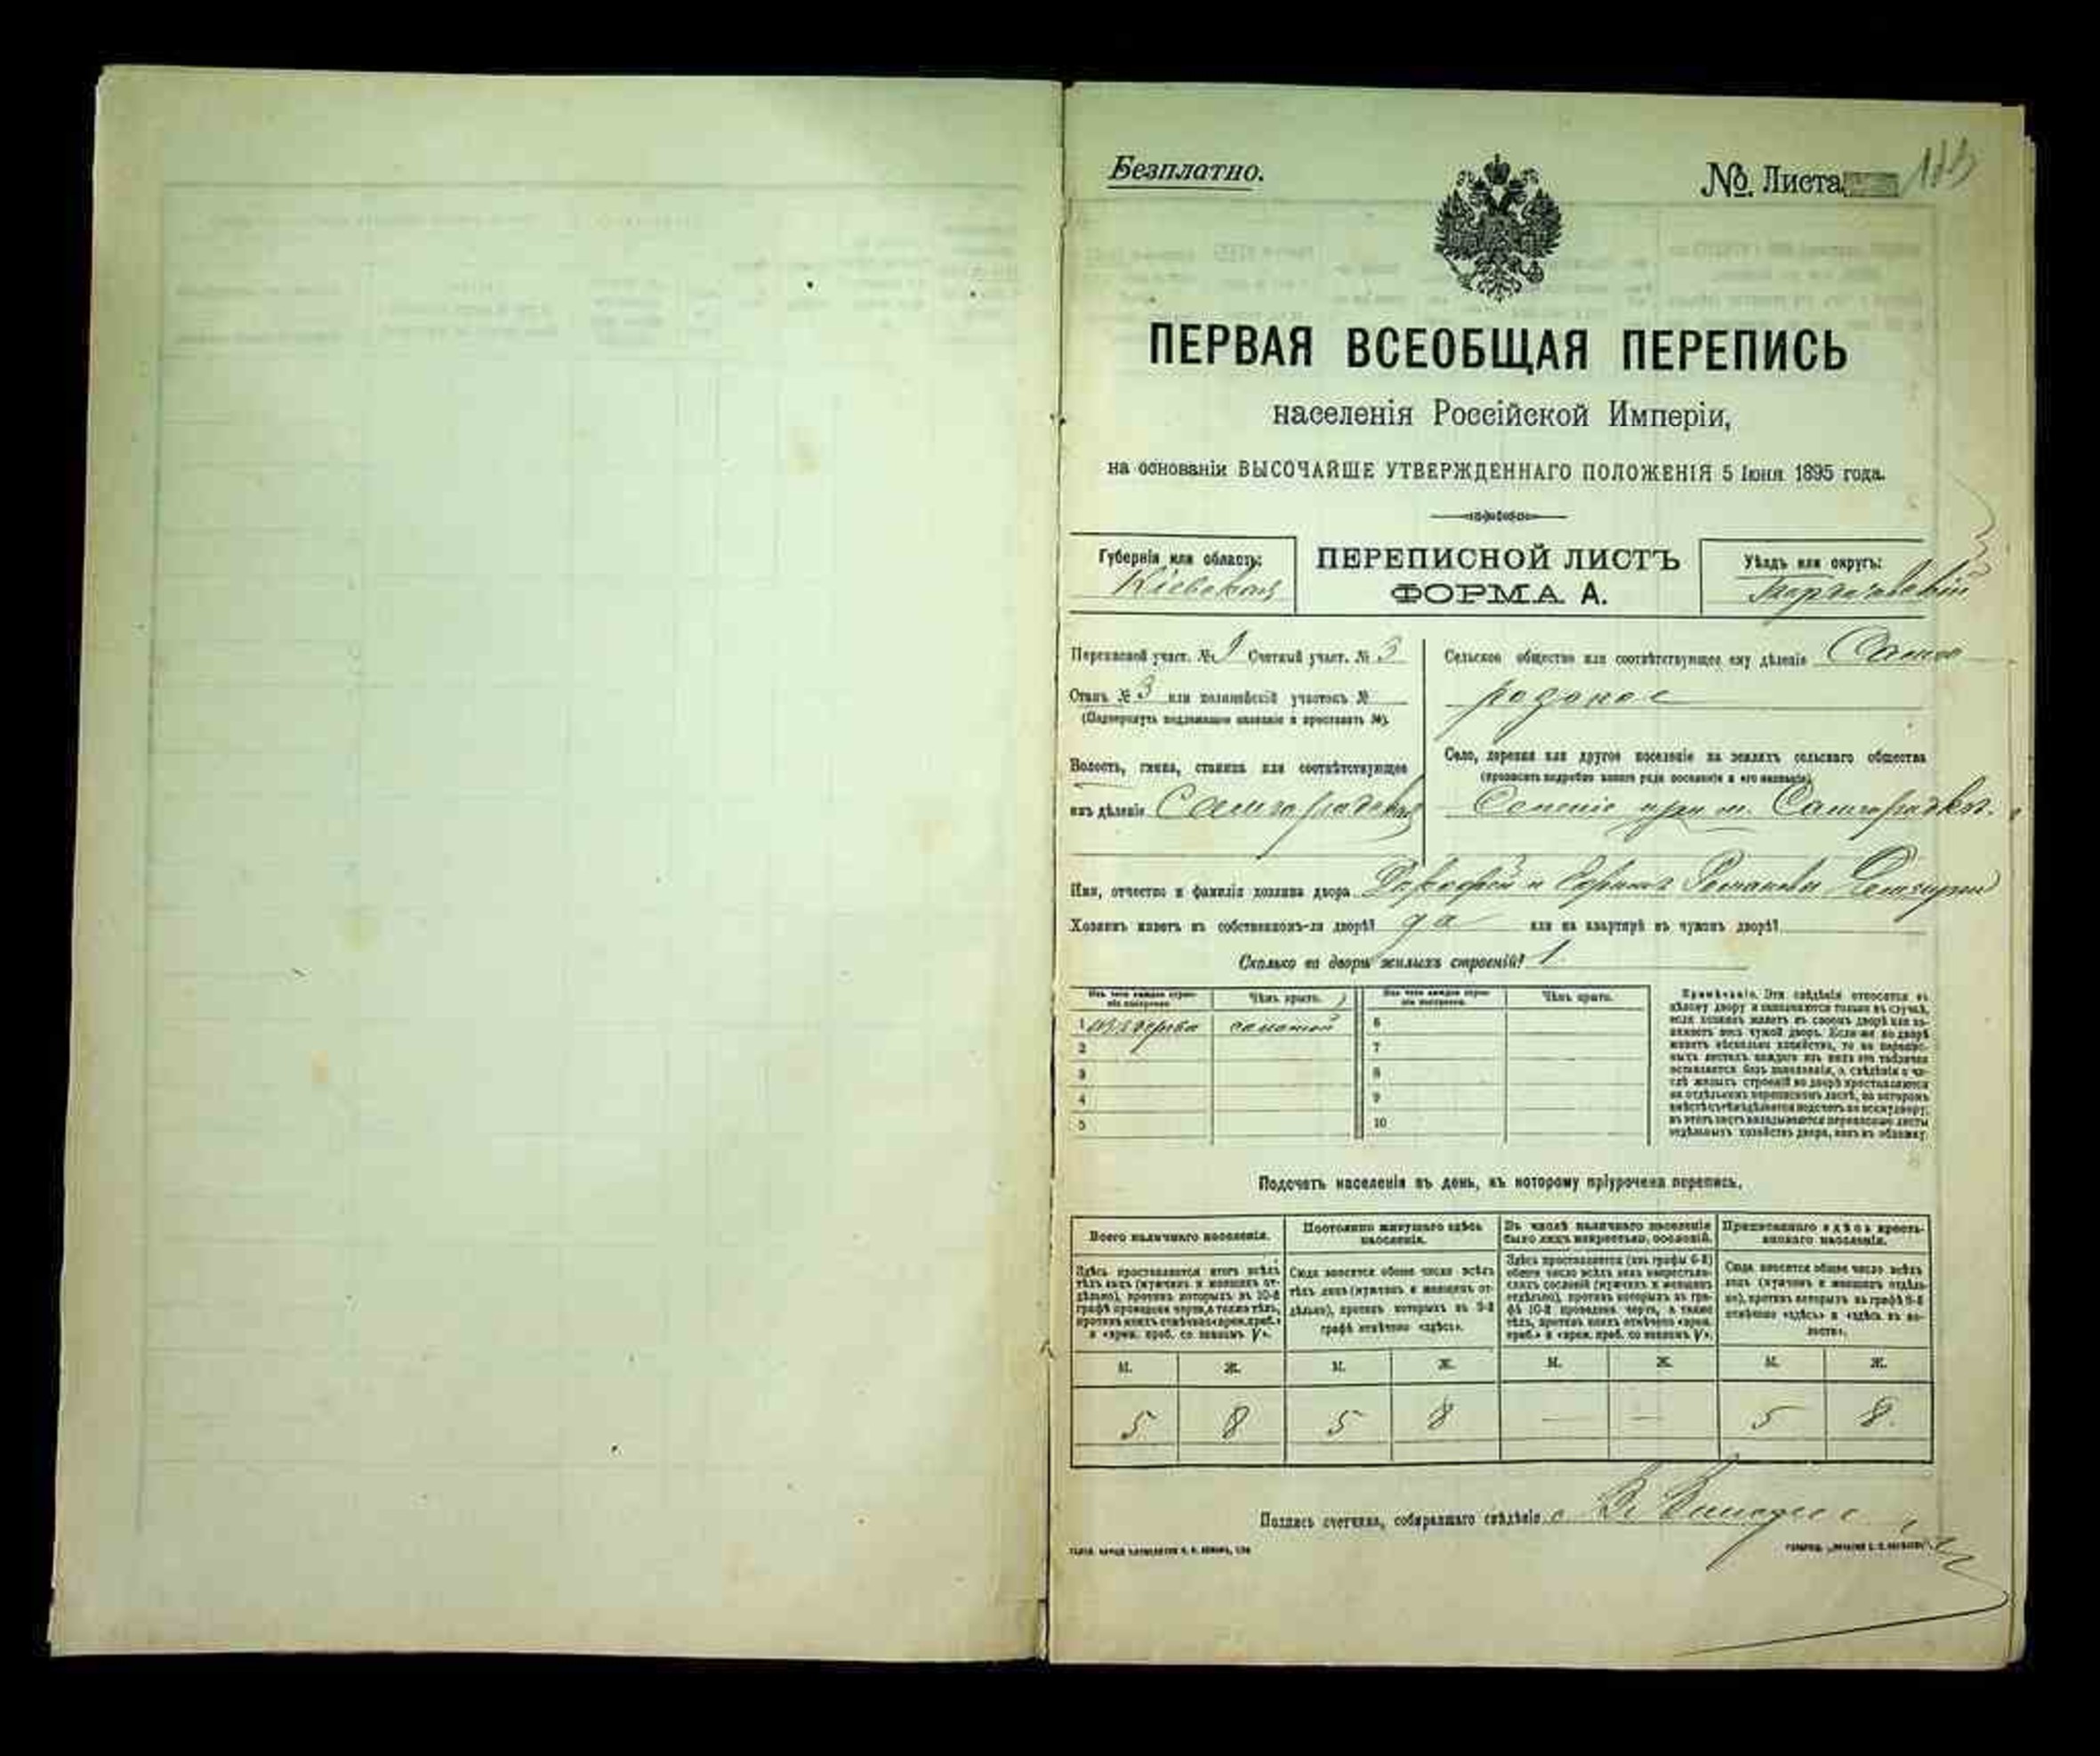 Безплатно.
№ Листа
ПЕРВАЯ ВСЕОБЩАЯ ПЕРЕПИСЬ
населенія Россійской Имперіи,
на основаніи ВЫСОЧАЙШЕ УТВЕРЖДЕННАГО ПОЛОЖЕНІЯ 5 Іюня 1895 года.
Губернія или область:
Кіевская
ПЕРЕПИСНОЙ ЛИСТЪ
ФОРМА А.
Уѣздъ или округъ:
Переписной участ. № Счетный участ. № 3
Станъ № 3 или полицейскій участокъ №
(Подчеркнуть подлежащее названіе и проставить №).
Волость, гмина, станица или соотвѣтствующее
имъ дѣленіе Самгородская
Сельское общество или соотвѣтствующее ему дѣленіе Самго
родское
Село, деревня или другое поселеніе на земляхъ сельскаго общества
(прописать подробно какого рода поселеніе и его названіе)
при м. Самгородкѣ.
Имя, отчество и фамилія хозяина двора и Романовы
Хозяинъ живетъ въ собственномъ-ли дворѣ? да или на квартирѣ въ чужомъ дворѣ?
Сколько во дворѣ жилыхъ строеній? 1
Изъ чего каждое строеніе построено. Чѣмъ крыто. Изъ чего каждое строеніе построено. Чѣмъ крыто.
1 изъ дерева соломой 6
2 7
3 8
4 9
5 10
Примѣчаніе. Эти свѣдѣнія относятся къ
цѣлому двору и записываются только въ случаѣ,
если хозяинъ живетъ въ своемъ дворѣ или за-
нимаетъ весь чужой дворъ. Если же во дворѣ
живетъ нѣсколько хозяйствъ, то на перепис-
ныхъ листахъ каждаго изъ нихъ эта табличка
оставляется безъ заполненія, а свѣдѣнія о чи-
слѣ жилыхъ строеній во дворѣ проставляются
на отдѣльномъ переписномъ листѣ, на которомъ
вмѣстѣ съ тѣмъ дѣлается подсчетъ по всему двору;
въ этотъ листъ вкладываются переписные листы
отдѣльныхъ хозяйствъ двора, какъ въ обложку.
Подсчетъ населенія въ день, къ которому пріурочена перепись.
Всего наличнаго населенія.
Здѣсь проставляется итогъ всѣхъ
тѣхъ лицъ (мужчинъ и женщинъ от-
дѣльно), противъ которыхъ въ 10-й
графѣ проведена черта, а также тѣхъ,
противъ коихъ отмѣчено «врем. преб.»
и «врем. преб. со знакомъ V».
Постоянно живущаго здѣсь
населенія.
Сюда вносится общее число всѣхъ
тѣхъ лицъ (мужчинъ и женщинъ от-
дѣльно), противъ которыхъ въ 9-й
графѣ отмѣчено «здѣсь».
Въ числѣ наличнаго населенія
было лицъ некрестьян. сословій.
Здѣсь проставляется (изъ графы 6-й)
общее число всѣхъ лицъ некрестьян-
скихъ сословій (мужчинъ и женщинъ
отдѣльно), противъ которыхъ въ гра-
фѣ 10-й проведена черта, а также
тѣхъ, противъ коихъ отмѣчено «врем.
преб.» и «врем. преб. со знакомъ V».
Приписаннаго здѣсь кресть-
янскаго населенія.
Сюда вносится общее число всѣхъ
лицъ (мужчинъ и женщинъ отдѣль-
но), противъ которыхъ въ графѣ 8-й
отмѣчено «здѣсь» и «здѣсь въ во-
лости».
М. Ж. М. Ж. М. Ж. М. Ж.
5 8 5 8 — — 5 8
Подпись счетчика, собиравшаго свѣдѣнія